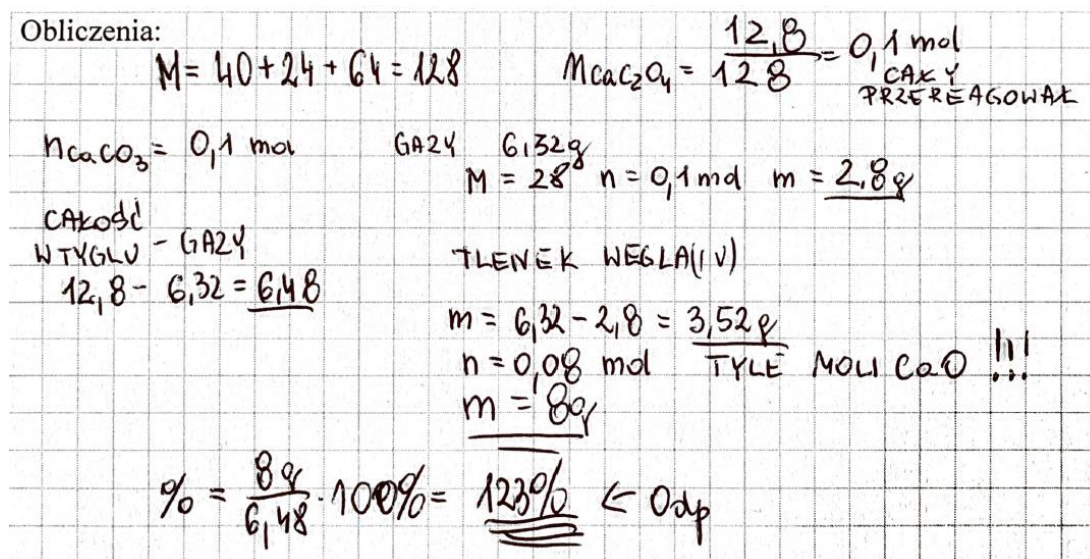 Obliczenia:
M = 40 + 24 + 64 = 128
nCaC₂O₄ = 12,8 / 128 = 0,1 mol
CAŁY
PRZEREAGOWAŁ
nCaCO₃ = 0,1 mol
GAZY 6,32g
M = 28 n = 0,1 mol m = 2,8g
CAŁOŚĆ
W TYGLU - GAZY
12,8 - 6,32 = 6,48
TLENEK WĘGLA(IV)
m = 6,32 - 2,8 = 3,52g
n = 0,08 mol TYLE MOLI CaO !!!
m = 8g
% = 8g / 6,48 · 100% = 123% ← Odp